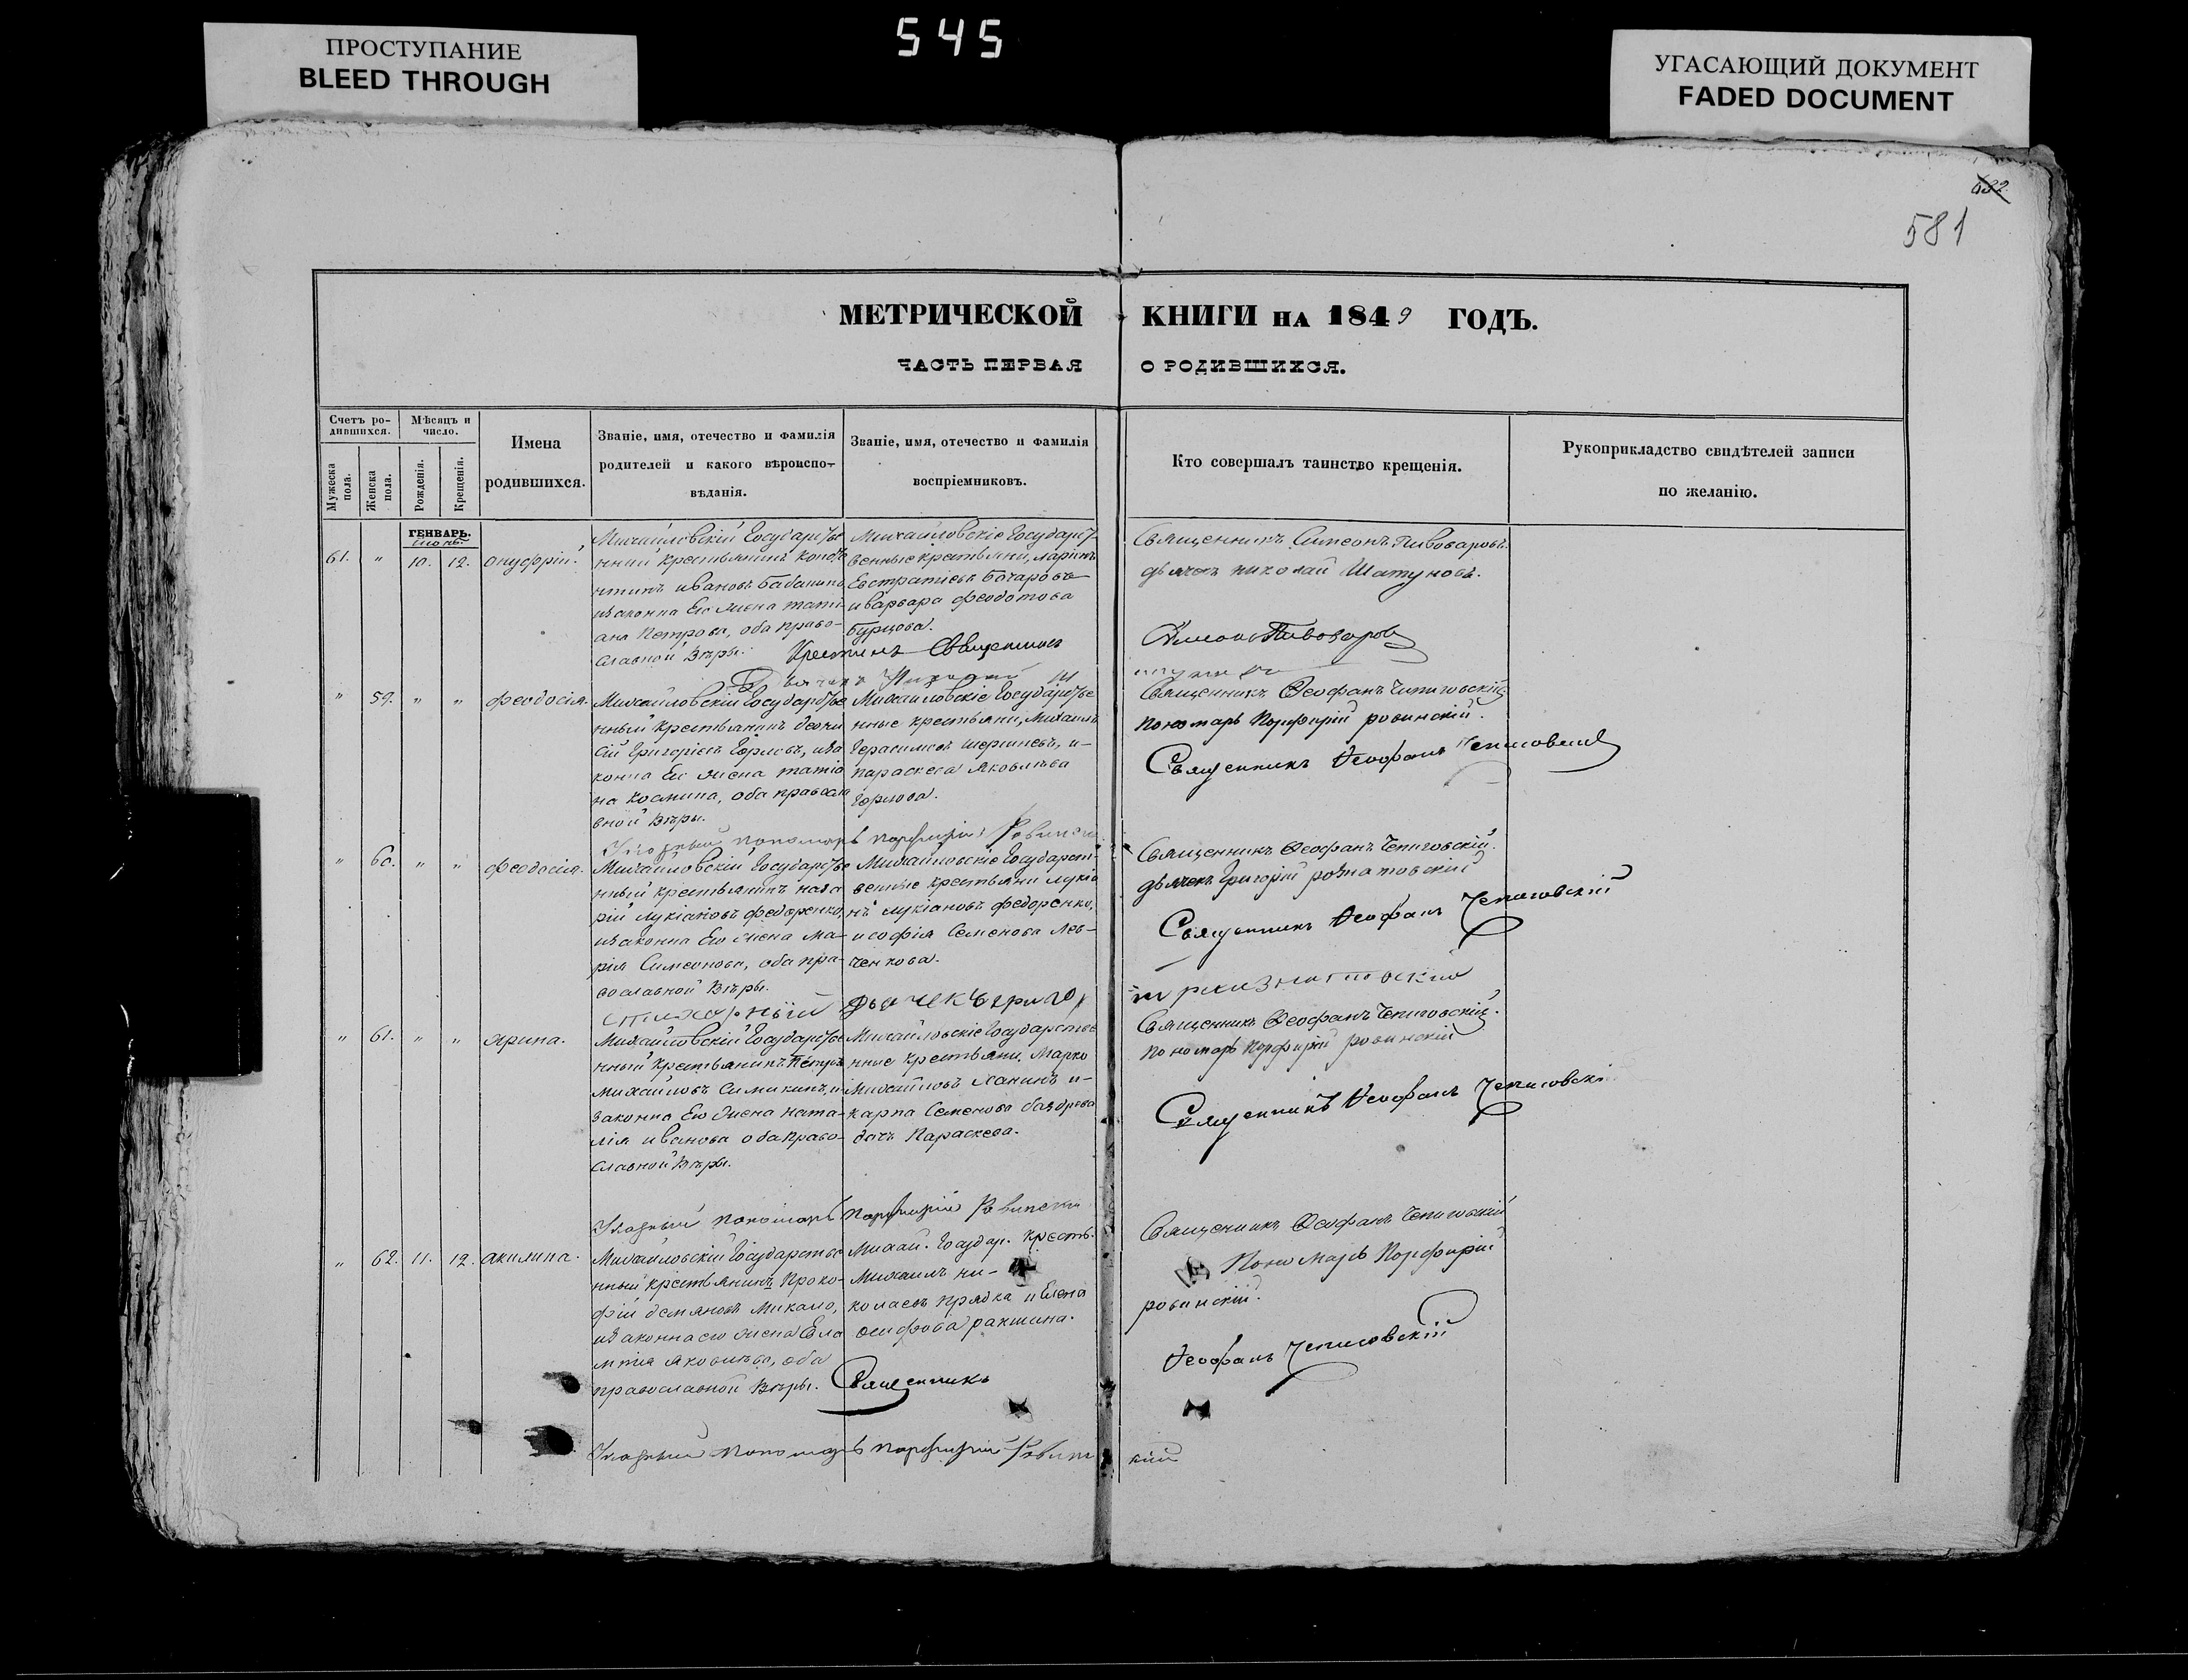 545
ПРОСТУПАНИЕ
BLEED THROUGH
УГАСАЮЩИЙ ДОКУМЕНТ
FADED DOCUMENT
581
МЕТРИЧЕСКОЙ КНИГИ НА 1849 ГОДЪ.
ЧАСТЬ ПЕРВАЯ О РОДИВШИХСЯ.
Счетъ ро-
дившихся.
Мужеска
пола.
Женска
пола.
Мѣсяцъ и
число.
Рожденія.
Крещенія.
Имена
родившихся.
Званіе, имя, отечество и фамилія
родителей и какого вѣроиспо-
вѣданія.
Званіе, имя, отечество и фамилія
воспріемниковъ.
Кто совершалъ таинство крещенія.
Рукоприкладство свидѣтелей записи
по желанію.
ГЕНВАРЬ.
61. " 10. 12. онуфрій.
Михайловскій Государстве
нный крестьянинъ
ивановъ
изаконна Его жена тати-
ана Петрова, оба право-
славной Вѣры.
Михайловскіе Государст-
венные крестьяни,
Евстратіевъ Бочаровъ
и варвара феодотова
Бурцова.
Священникъ Симеонъ Пивоваровъ.
дьячекъ николай Шатуновъ.
Крестилъ Священникъ Симеонъ Пивоваровъ
" 59. " " феодосія.
Михайловскій Государстве
нный крестьянинъ
Григоріевъ Горловъ, иза
конна Его жена татiа
на Космина, оба правосла
вной Вѣры.
Михайловскіе Государстве
нные крестьяни, Михаилъ
Герасимовъ и-
параскева Яковлева
Горлова.
Священникъ Феофанъ Чепиговскій
пономарь Порфирій ровинскій.
Священникъ Феофанъ Чепиговскій
пономарь Порфирій Ровинскій
" 60. " " феодосія.
Михайловскій Государстве
нный крестьянинъ наза
рій лукіановъ федоренко,
изаконна Его жена Ма-
рія Симеонова, оба пра-
вославной Вѣры.
Михайловскіе Государст-
венные крестьяни лукіа
нъ лукіановъ федоренко,
и софія Семенова Лев-
ченкова.
Священникъ Феофанъ Чепиговскій.
дьячекъ Григорій розматовскій
Священникъ Феофанъ Чепиговскій
" 61. " " ярина.
Михайловскій Государстве
нный крестьянинъ Петръ
михайловъ Симикинъ, и
законна Его жена ната-
лія иванова оба право-
славной Вѣры.
Михайловскіе Государстве
нные крестьяни, Марко
Михайловъ и-
карпа Семенова
дочь Параскева.
Священникъ Феофанъ Чепиговскій.
пономарь порфирій ровинскій
Священникъ Феофанъ Чепиговскі
пономарь Порфирій Ровинскій
" 62. 11. 12. акилина.
Михайловскій Государстве
нный крестьянинъ Проко-
фій демяновъ Микало,
изаконна его жена
Яковлева, оба
православной Вѣры.
Михай. Государ. Кресть.
Михаилъ ни-
колаевъ прядка и Елена
осифова ракшина.
Священникъ Феофанъ Чепиговскій
Пономарь Порфирій
ровинскій.
Священникъ Феофанъ Чепиговскій
Пономарь Порфирій Ровинскій